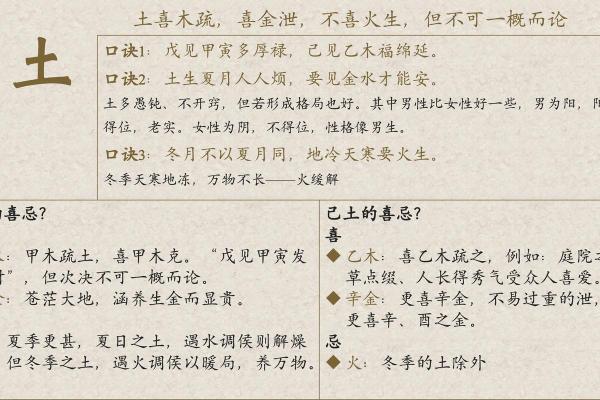 土喜木疏，喜金泄，不喜火生，但不可一概而论
土
口诀1：戊见甲寅多厚禄，己见乙木福绵延。
口诀2：土生夏月人人烦，要见金水才能安。
土多愚钝、不开窍，但若形成格局也好。其中男性比女性好一些，男为阳，阳
得位，老实。女性为阴，不得位，性格像男生。
口诀3：冬月不以夏月同，地冷天寒要火生。
冬季天寒地冻，万物不长——火缓解
的喜忌？
：甲木疏土，喜甲木克。“戊见甲寅发
”，但次决不可一概而论。
：苍茫大地，涵养生金而显贵。
夏季更甚，夏日之土，遇水调侯则解燥
但冬季之土，遇火调侯以暖局，养万物。
己土的喜忌？
喜
◆ 乙木：喜乙木疏之，例如：庭院之
草点缀、人长得秀气受众人喜爱。
◆ 辛金：更喜辛金，不易过重的泄，
更喜辛、酉之金。
忌
◆ 火：冬季的土除外